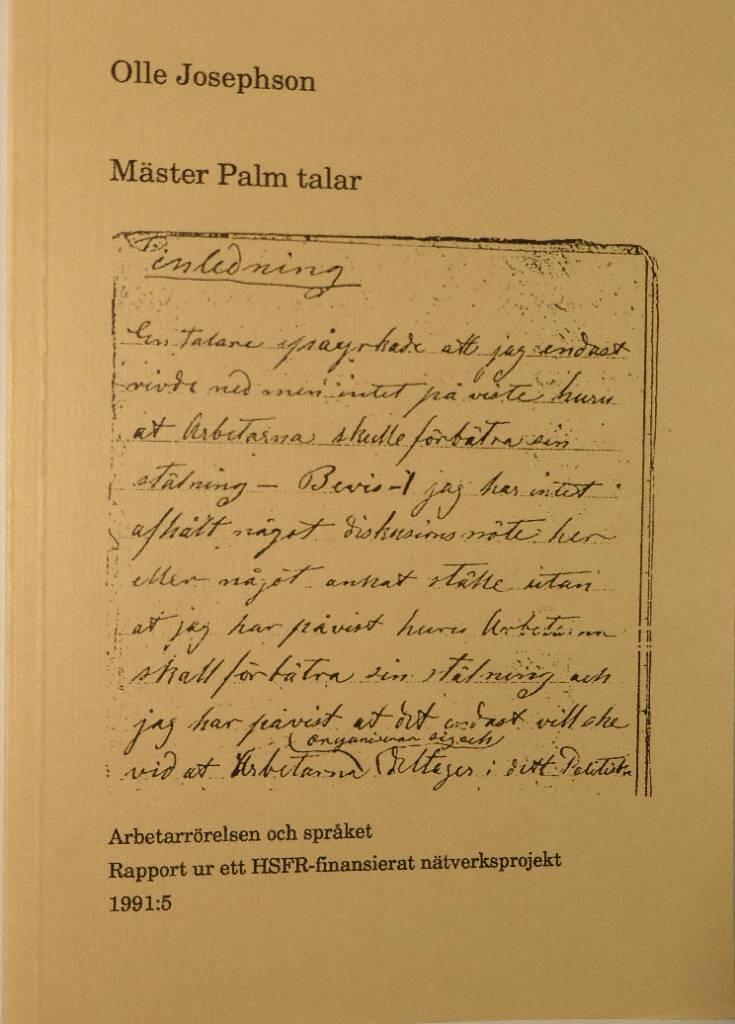 Olle Josephson
Mäster Palm talar
inledning
En talare påyrkade att jag endast
rivde ned men intet på viste huru
at Arbetarna skulle förbätra sin
stälning — Bevis -1 jag har intet
afhålt något diskusionsmöte her
eller något ankat ställe utan
at jag har påvist huru Arbetarna
skall förbätra sin stälning och
jag har påvist at det endast vill ske
organiserar sig och
vid at Arbetarna deltager i dett Politiska
Arbetarrörelsen och språket
Rapport ur ett HSFR-finansierat nätverksprojekt
1991:5